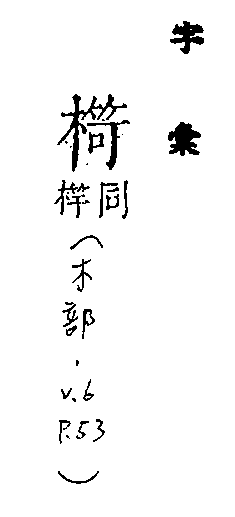 字彙
同
(木部・v.6
P.53)